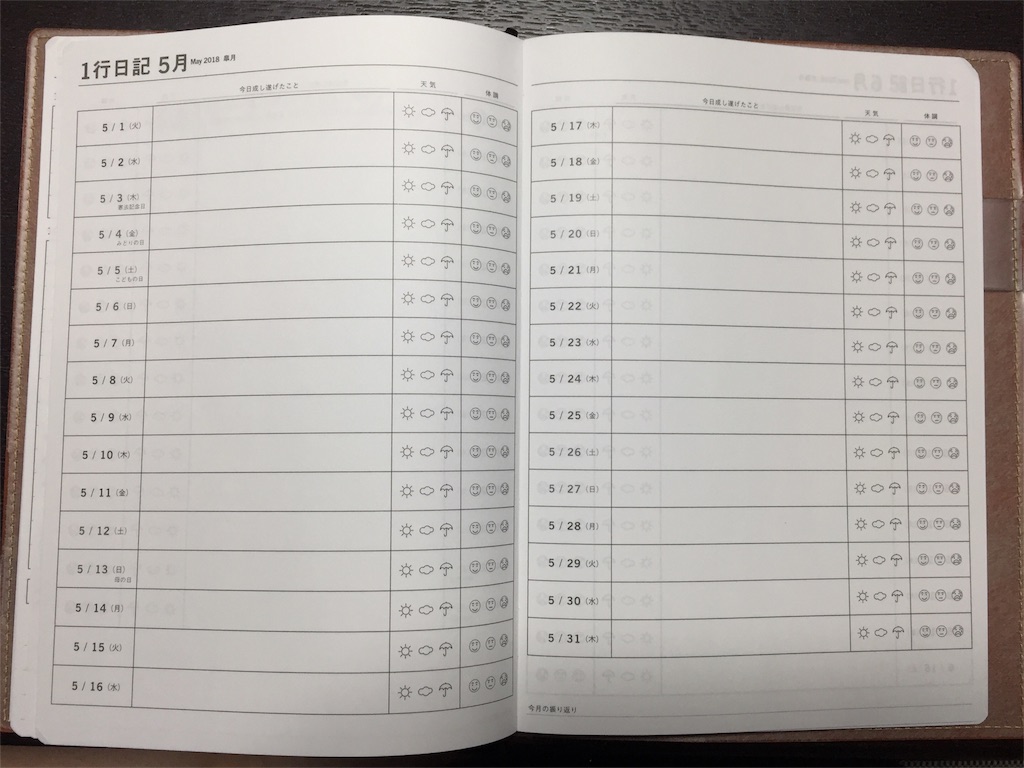 1行日記 5月 May 2018 皐月
今日成し遂げたこと 天気 体調
5 / 1 (火)
5 / 2 (水)
5 / 3 (木)
憲法記念日
5 / 4 (金)
みどりの日
5 / 5 (土)
こどもの日
5 / 6 (日)
5 / 7 (月)
5 / 8 (火)
5 / 9 (水)
5 / 10 (木)
5 / 11 (金)
5 / 12 (土)
5 / 13 (日)
母の日
5 / 14 (月)
5 / 15 (火)
5 / 16 (水)
今日成し遂げたこと 天気 体調
5 / 17 (木)
5 / 18 (金)
5 / 19 (土)
5 / 20 (日)
5 / 21 (月)
5 / 22 (火)
5 / 23 (水)
5 / 24 (木)
5 / 25 (金)
5 / 26 (土)
5 / 27 (日)
5 / 28 (月)
5 / 29 (火)
5 / 30 (水)
5 / 31 (木)
今月の振り返り